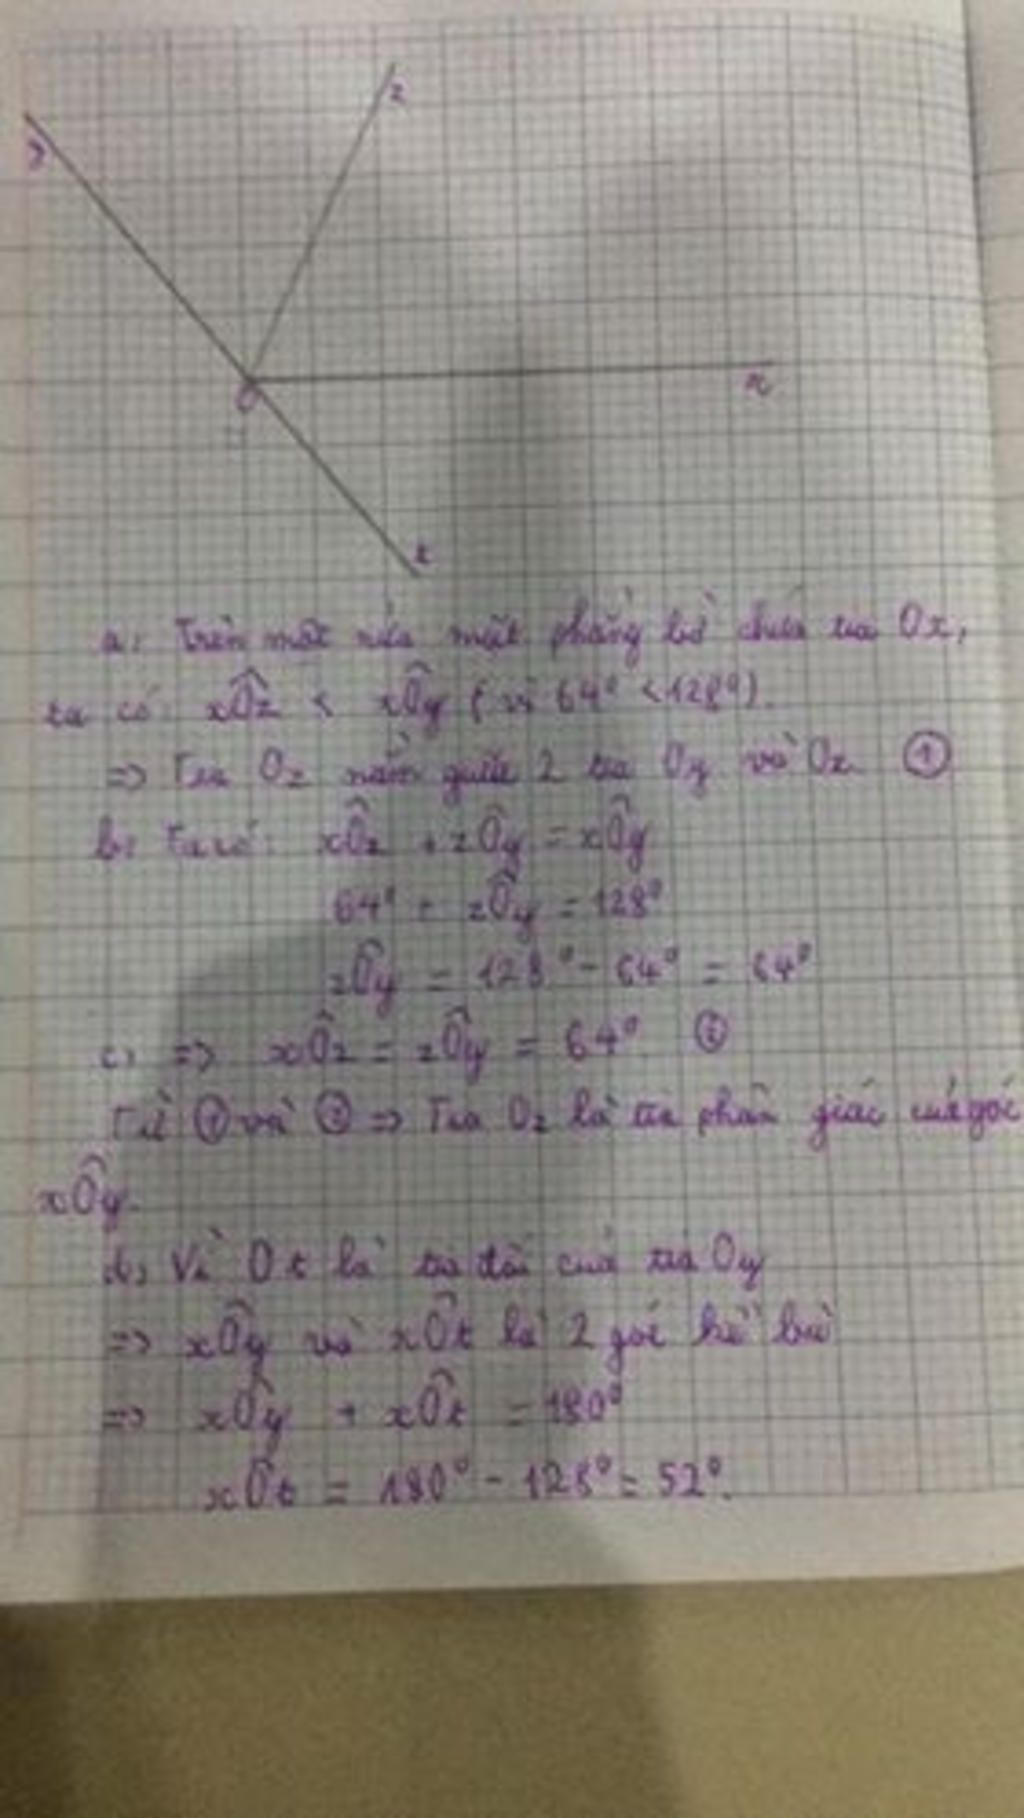 z
y
O
x
t
a, Trên một nửa mặt phẳng bờ chứa tia Ox,
ta có: xÔz < xÔy (vì 64° < 128°).
=> Tia Oz nằm giữa 2 tia Oy và Ox ①
b, Ta có: xÔz + zÔy = xÔy
64° + zÔy = 128°
zÔy = 128° - 64° = 64°
c, => xÔz = zÔy = 64° ②
Từ ① và ② => Tia Oz là tia phân giác của góc
xÔy.
d, Vì Ot là tia đối của tia Oy
=> xÔy và xÔt là 2 góc kề bù
=> xÔy + xÔt = 180°
xÔt = 180° - 128° = 52°.